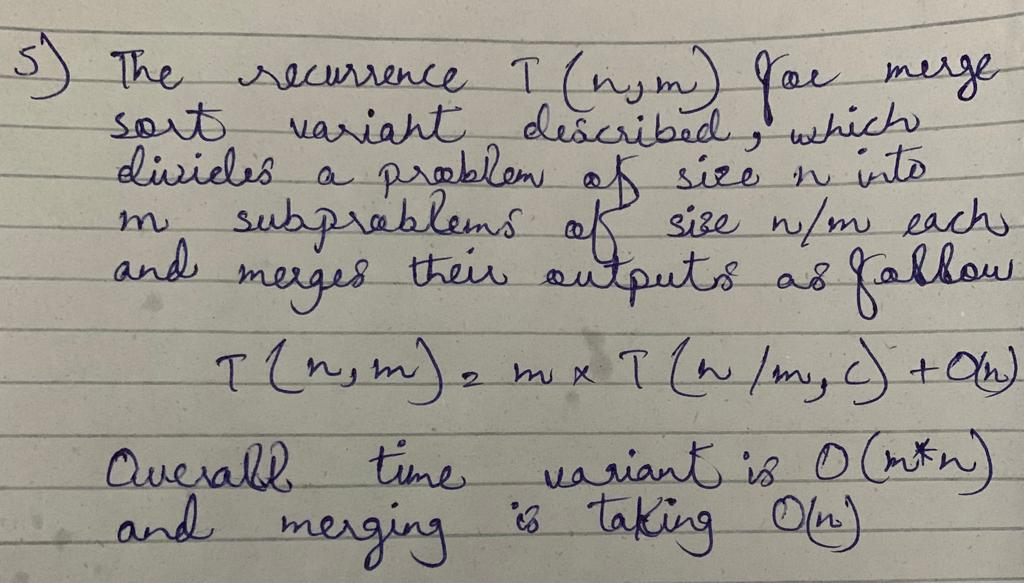 5) The recurrence T(n,m) for merge
sort variant described, which
divides a problem of size n into
m subproblems of size n/m each
and merges their outputs as follow
T(n,m) = m x T(n/m, c) + O(n)
Overall time variant is O(m*n)
and merging is taking O(n)